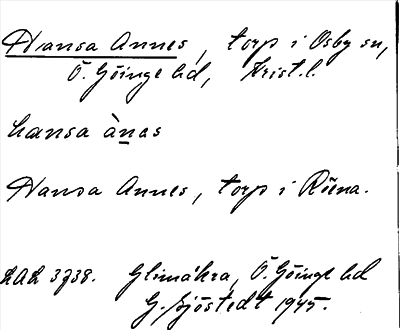 Hansa Annes, torp i Osby sn,
Ö. Göinge hd, Krist. l.
hansa ànas
Hansa Annes, torp i Röena.
LAL 3738. Glimåkra, Ö. Göinge hd
G. Sjöstedt 1945.